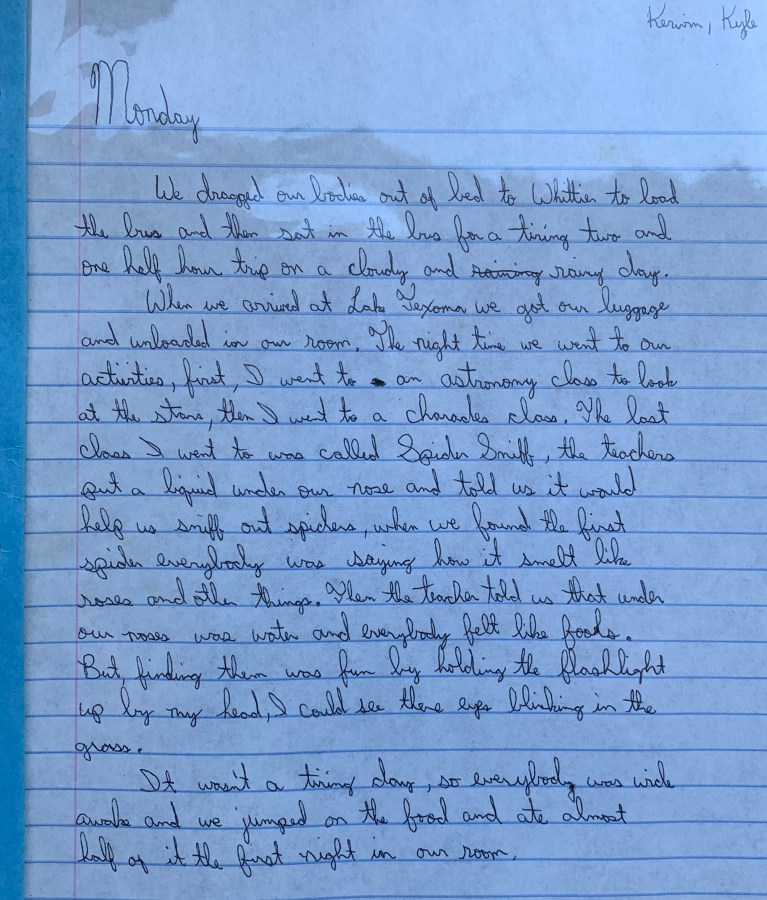 Kerwin, Kyle
Monday
We dragged our bodies out of bed to Whittier to load
the bus and then sat in the bus for a tiring two and
one half hour trip on a cloudy and raining rainy day.
When we arrived at Lake Texoma we got our luggage
and unloaded in our room. The night time we went to our
activities, first, I went to an astronomy class to look
at the stars, then I went to a charades class. The last
class I went to was called Spider Sniff, the teachers
put a liquid under our nose and told us it would
help us sniff out spiders, when we found the first
spider everybody was saying how it smelt like
roses and other things. Then the teacher told us that under
our noses was water and everybody felt like fools.
But, finding them was fun by holding the flashlight
up by my head, I could see there eyes blinking in the
grass.
It wasn't a tiring day, so everybody was wide
awake and we jumped on the food and ate almost
half of it the first night in our room.